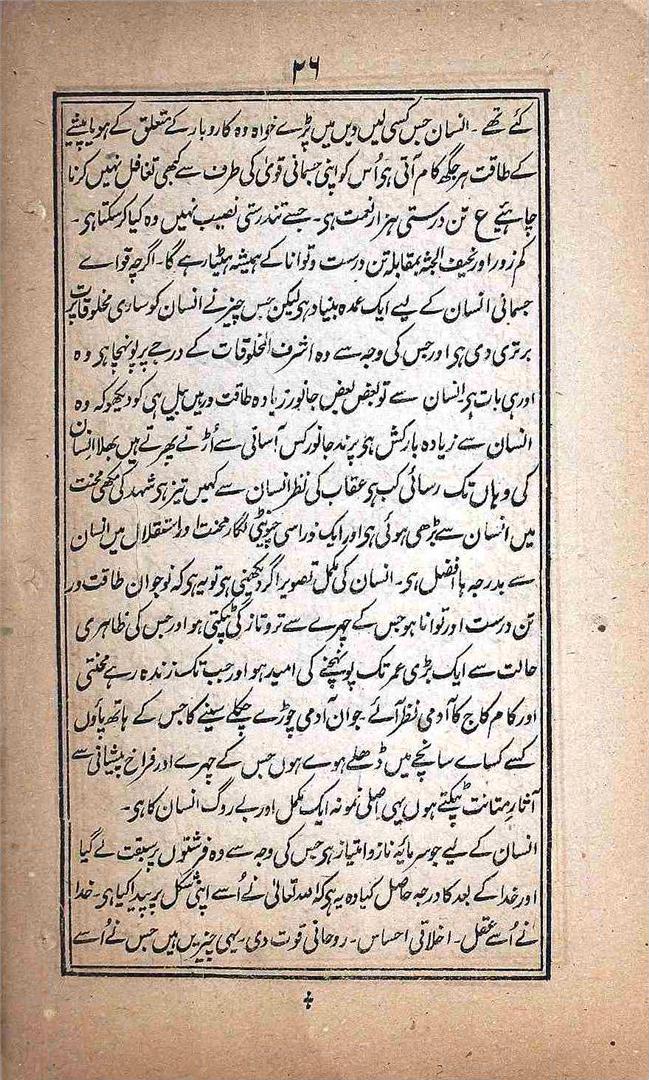 ۲۶
گئے تھے ۔ انسان جس کسی لیں دیں میں پڑے خواہ وہ کاروبار کے متعلق کے ہو یا پیشے
کے طاقت ہر جگہ کام آتی ہی اُس کو اپنی جسمانی قویٰ کی طرف سے کبھی تغافل نہیں کرنا
چاہئیے ع تن درستی ہزار نعمت ہی ۔ جسے تندرستی نصیب نہیں وہ کیا کر سکتا ہی ۔
کم زور اور نحیف الجثہ بمقابلہ تن درست و توانا کے ہمیشہ ہٹیا رہے گا ۔ اگرچہ قواے
جسمانی انسان کے لیے ایک عمدہ بنیاد ہی لیکن جس چیز نے انسان کو ساری مخلوقات پر
برتری دی ہی اور جس کی وجہ سے وہ اشرف المخلوقات کے درجے پر پونہچا ہی وہ
اور ہی بات ہی انسان سے تو بعض بعض جانور زیادہ طاقت ور ہیں بیل ہی کو دیکھو کہ وہ
انسان سے زیادہ بارکش ہی پرند جانور کس آسانی سے اُڑتے پھرتے ہیں بھلا انسان
کی وہاں تک رسائی کب ہی عقاب کی نظر انسان سے کہیں تیز ہی شہد کی مکھی محنت
میں انسان سے بڑھی ہوئی ہی اور ایک ذرا سی چونٹی لگار محنت اور استقلال میں انسان
سے بدرجہ ہا افضل ہی ۔ انسان کی مکمل تصویر اگر دیکھنی ہی تو یہ ہی کہ نوجوان طاقت ور
تن درست اور توانا ہو جس کے چہرے سے تر و تازگی ٹپکتی ہو اور جس کی ظاہری
حالت سے ایک بڑی عمر تک پونہچنے کی امید ہو اور جب تک زندہ رہے محنتی
اور کام کاج کا آدمی نظر آئے جوان آدمی چوڑے چکلے سینے کا جس کے ہاتھ پاؤں
کسے کساے سانچے میں ڈھلے ہوے ہوں جس کے چہرے اور فراخ پیشانی سے
آثارِ متانت ٹپکتے ہوں یہی اصلی نمونہ ایک مکمل اور بے روگ انسان کا ہی ۔
انسان کے لیے جو سرمایۂ ناز و امتیاز ہی جس کی وجہ سے وہ فرشتوں پر سبقت لے گیا
اور خدا کے بعد کا درجہ حاصل کیا وہ یہ ہی کہ اللہ تعالیٰ نے اُسے اپنی شکل پر پیدا کیا ہی ۔ خدا
نے اُسے عقل ۔ اخلاقی احساس ۔ روحانی قوت دی ۔ یہی چیزیں ہیں جس نے اُسے